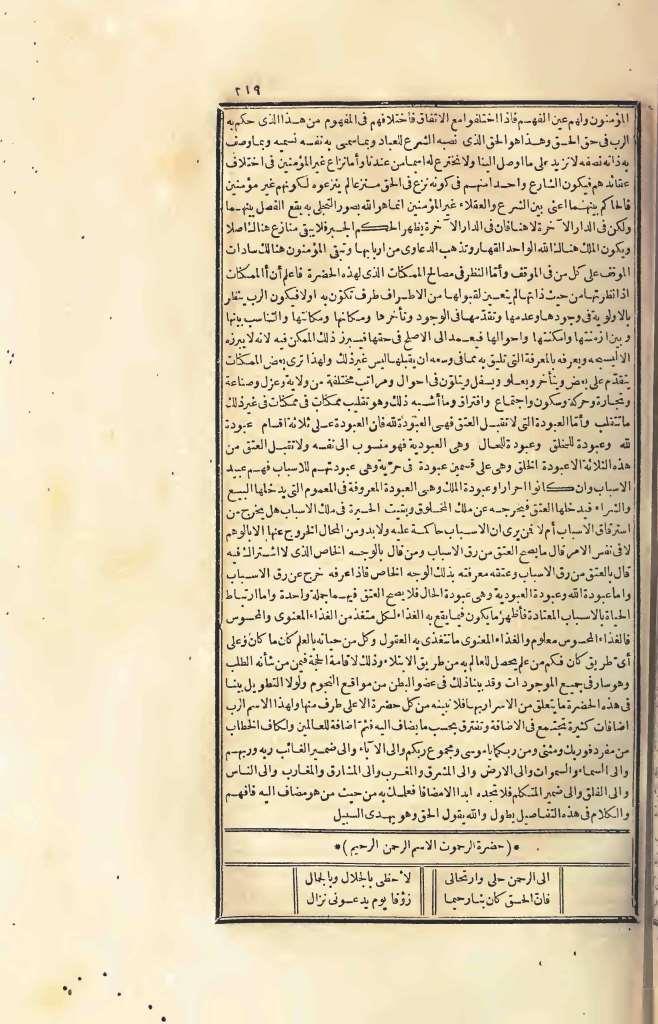 ٢١٩
المؤمنون ولهم عين الفهم فاذا اختلفوا مع الاتفاق فاختلافهم فى المفهوم من هذا الذى حكم به
الرب فى حق الحق وهذا هو الحق الذى نصبه الشرع للعباد وبما سمى به نفسه نسميه وبما وصف
به ذاته نصفه لا نزيد على ما وصل الينا ولا نخترع له اسما من عندنا وأما نزاع غير المؤمنين فى اختلاف
عقائدهم فيكون الشارع واحدا منهم فى كونه نزع فى الحق منزعا لم ينزعوه لكونهم غير مؤمنين
فالحاكم بينهما أعنى بين الشرع والعقلاء غير المؤمنين انما هو الله بصور التجلى به يقع الفصل بينهما
ولكن فى الدار الآخرة لا هنا فان فى الدار الآخرة يظهر الحكم الجبر فلا يبقى منازع هنالك اصلا
ويكون الملك هنالك لله الواحد القهار وتذهب الدعاوى من اربابها وتبقى المؤمنون هنالك سادات
الموقف على كل من فى الموقف وأمّا النظر فى مصالح الممكنات الذى لهذه الحضرة فاعلم أن الممكنات
اذا نظرتها من حيث ذاتها لم يتعين لقبولها من الاطراف طرف تكون به اولا فيكون الرب ينظر
بالاولوية فى وجودها وعدمها وتقدّمها فى الوجود وتأخرها ومكانها ومكانتها والتناسب بينها
وبين ازمنتها وامكنتها واحوالها فيعمد الى الاصلح فى حقها فيبرز ذلك الممكن فيه لانه لا يبرزه
الا ليسبحه ويعرفه بالمعرفة التى تليق به مما فى وسعه ان يقبلها ليس غير ذلك ولهذا ترى بعض الممكنات
يتقدّم على بعض ويتأخر ويعلو ويسفل ويتلون فى احوال ومراتب مختلفة من ولاية وعزل وصناعة
وتجارة وحركة وسكون واجتماع وافتراق وما أشبه ذلك وهو تقليب ممكنات فى ممكنات فى غير ذلك
ما تتقلب وأمّا العبودة التى لا تقبل العتق فهى العبودة لله فان العبودة على ثلاثة اقسام عبودة
لله وعبودة للخلق وعبودة للحال وهى العبودية فهو منسوب الى نفسه ولا تقبل العتق من
هذه الثلاثة الا عبودة الخلق وهى على قسمين عبودة فى حرّية وهى عبودتهم للاسباب فهم عبيد
الاسباب وان كانوا احرارا وعبودة الملك وهى العبودة المعروفة فى العموم التى يدخلها البيع
والشراء فيدخلها العتق فيخرجه عن ملك المخلوق وبقيت الحيرة فى ملك الاسباب هل يخرج من
استرقاق الاسباب أم لا فمن يرى ان الاسباب حاكمة عليه ولا بد ومن المحال الخروج عنها الا بالوهم
لا فى نفس الامر قال ما يصح العتق من رق الاسباب ومن قال بالوجه الخاص الذى لا اشتراك فيه
قال بالعتق من رق الاسباب وعتقه معرفته بذلك الوجه الخاص فاذا عرفه خرج عن رق الاسباب
واما عبودة الله وعبودة العبودية وهى عبودة الحال فلا يصح العتق فيهما جملة واحدة واما ارتباط
الحياة بالاسباب المعتادة فأظهر ما يكون فيما يقع به الغذاء لكل متغذ من الغذاء المعنوى والمحسوس
فالغذاء المحسوس معلوم والغذاء المعنوى ما تتغذى به العقول وكل من حياته بالعلم كان ما كان وعلى
أىّ طريق كان فكم من علم يحصل للعالم به من طريق الابتلاء وذلك لاقامة الحجة فيمن من شأنه الطلب
وهو سار فى جميع الموجودات وقد بينا ذلك فى عضو البطن من مواقع النجوم ولولا التطويل بينا
فى هذه الحضرة ما يتعلق من الاسرار بها فلا نبينه من كل حضرة الا على طرف منها ولهذا الاسم الرب
اضافات كثيرة تجتمع فى الاضافة وتفترق بحسب ما يضاف اليه فثم اضافة للعالمين ولكاف الخطاب
من مفرد فوربك ومثنى ومن ربكما يا موسى ومجموع ربكم والى الآباء والى ضمير الغائب ربه وربهم
والى السماء والسموات والى الارض والى المشرق والمغرب والى المشارق والمغارب والى الناس
والى الفلق والى ضمير المتكلم فلا تجده ابدا الا مضافا فعلمك به من حيث من هو مضاف اليه فافهم
والكلام فى هذه التفاصيل يطول والله يقول الحق وهو يهدى السبيل
*(حضرة الرحموت الاسم الرحمن الرحيم)*
الى الرحمن حلى وارتحالى لاحظى بالجلال وبالجمال
فان الحق كان بنا رحيما رؤفا يوم يدعونى نزال